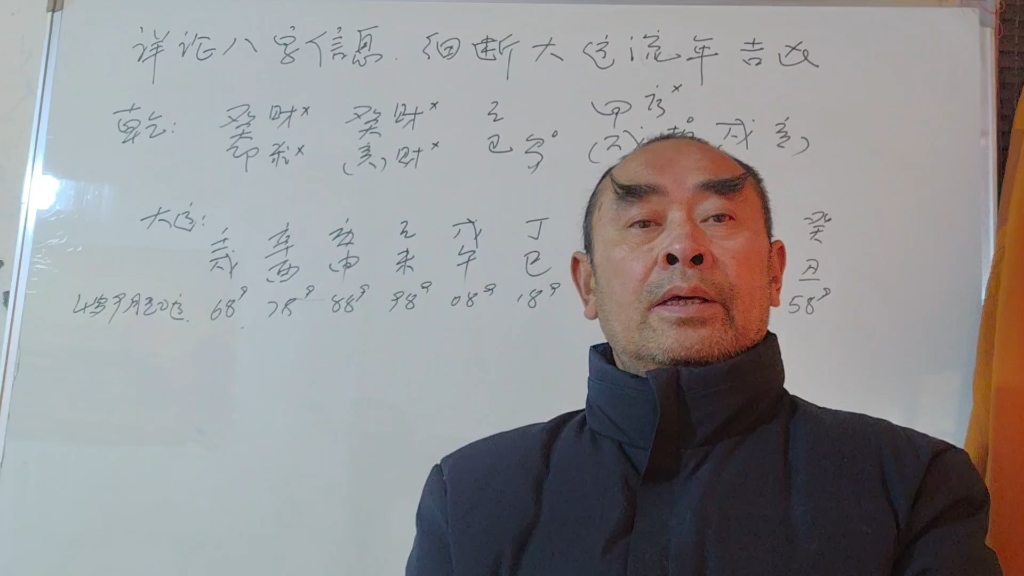 详论八字信息.细断大运流年吉凶
乾: 癸财× 癸财× 己 甲官×
卯杀× (亥)财× 巳印° (戌) 戌 亥)
大运: 壬 辛 庚 己 戊 丁 癸
戌 酉 申 未 午 巳 丑
68⁹ 78⁹ 88⁹ 98⁹ 08⁹ 18⁹ 58⁹